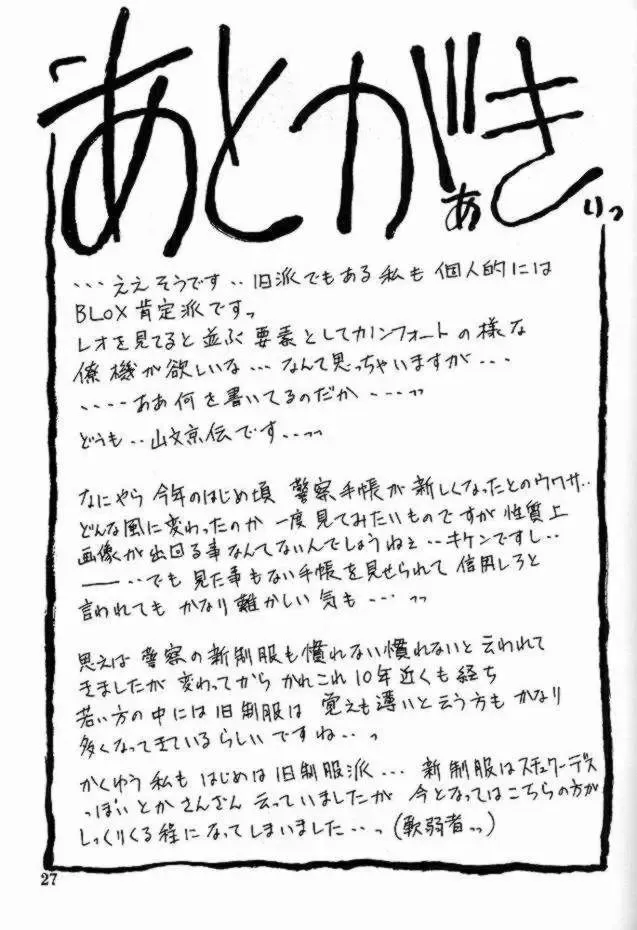 あとがき
ああ
りっ
･･･ええそうです‥旧派でもある私も個人的には
BLOX肯定派ですっ
レオを見てると並ぶ要素としてカノンフォートの様な
僚機が欲しいな･･･なんて思っちゃいますが･･･
････ああ何を書いてるのだか･･･っっ
どうも‥山文京伝です‥っっ
なにやら今年のはじめ頃 警察手帳が新しくなったとのウワサ‥
どんな風に変わったのか一度見てみたいものですが性質上
画像が出回る事なんてないんでしょうねぇ‥キケンですし‥
――‥でも見た事もない手帳を見せられて信用しろと
言われてもかなり難かしい気も･･･っっ
思えば警察の新制服も慣れない慣れないと云われて
きましたが変わってからかれこれ10年近くも経ち
若い方の中には旧制服は覚えも薄いと云う方もかなり
多くなってきているらしいですね‥っ
かくゆう私もはじめは旧制服派･･･新制服はスチュワーデス
っぽいとかさんざん云っていましたが今となってはこちらの方が
しっくりくる程になってしまいました‥っ(軟弱者っっ)
27